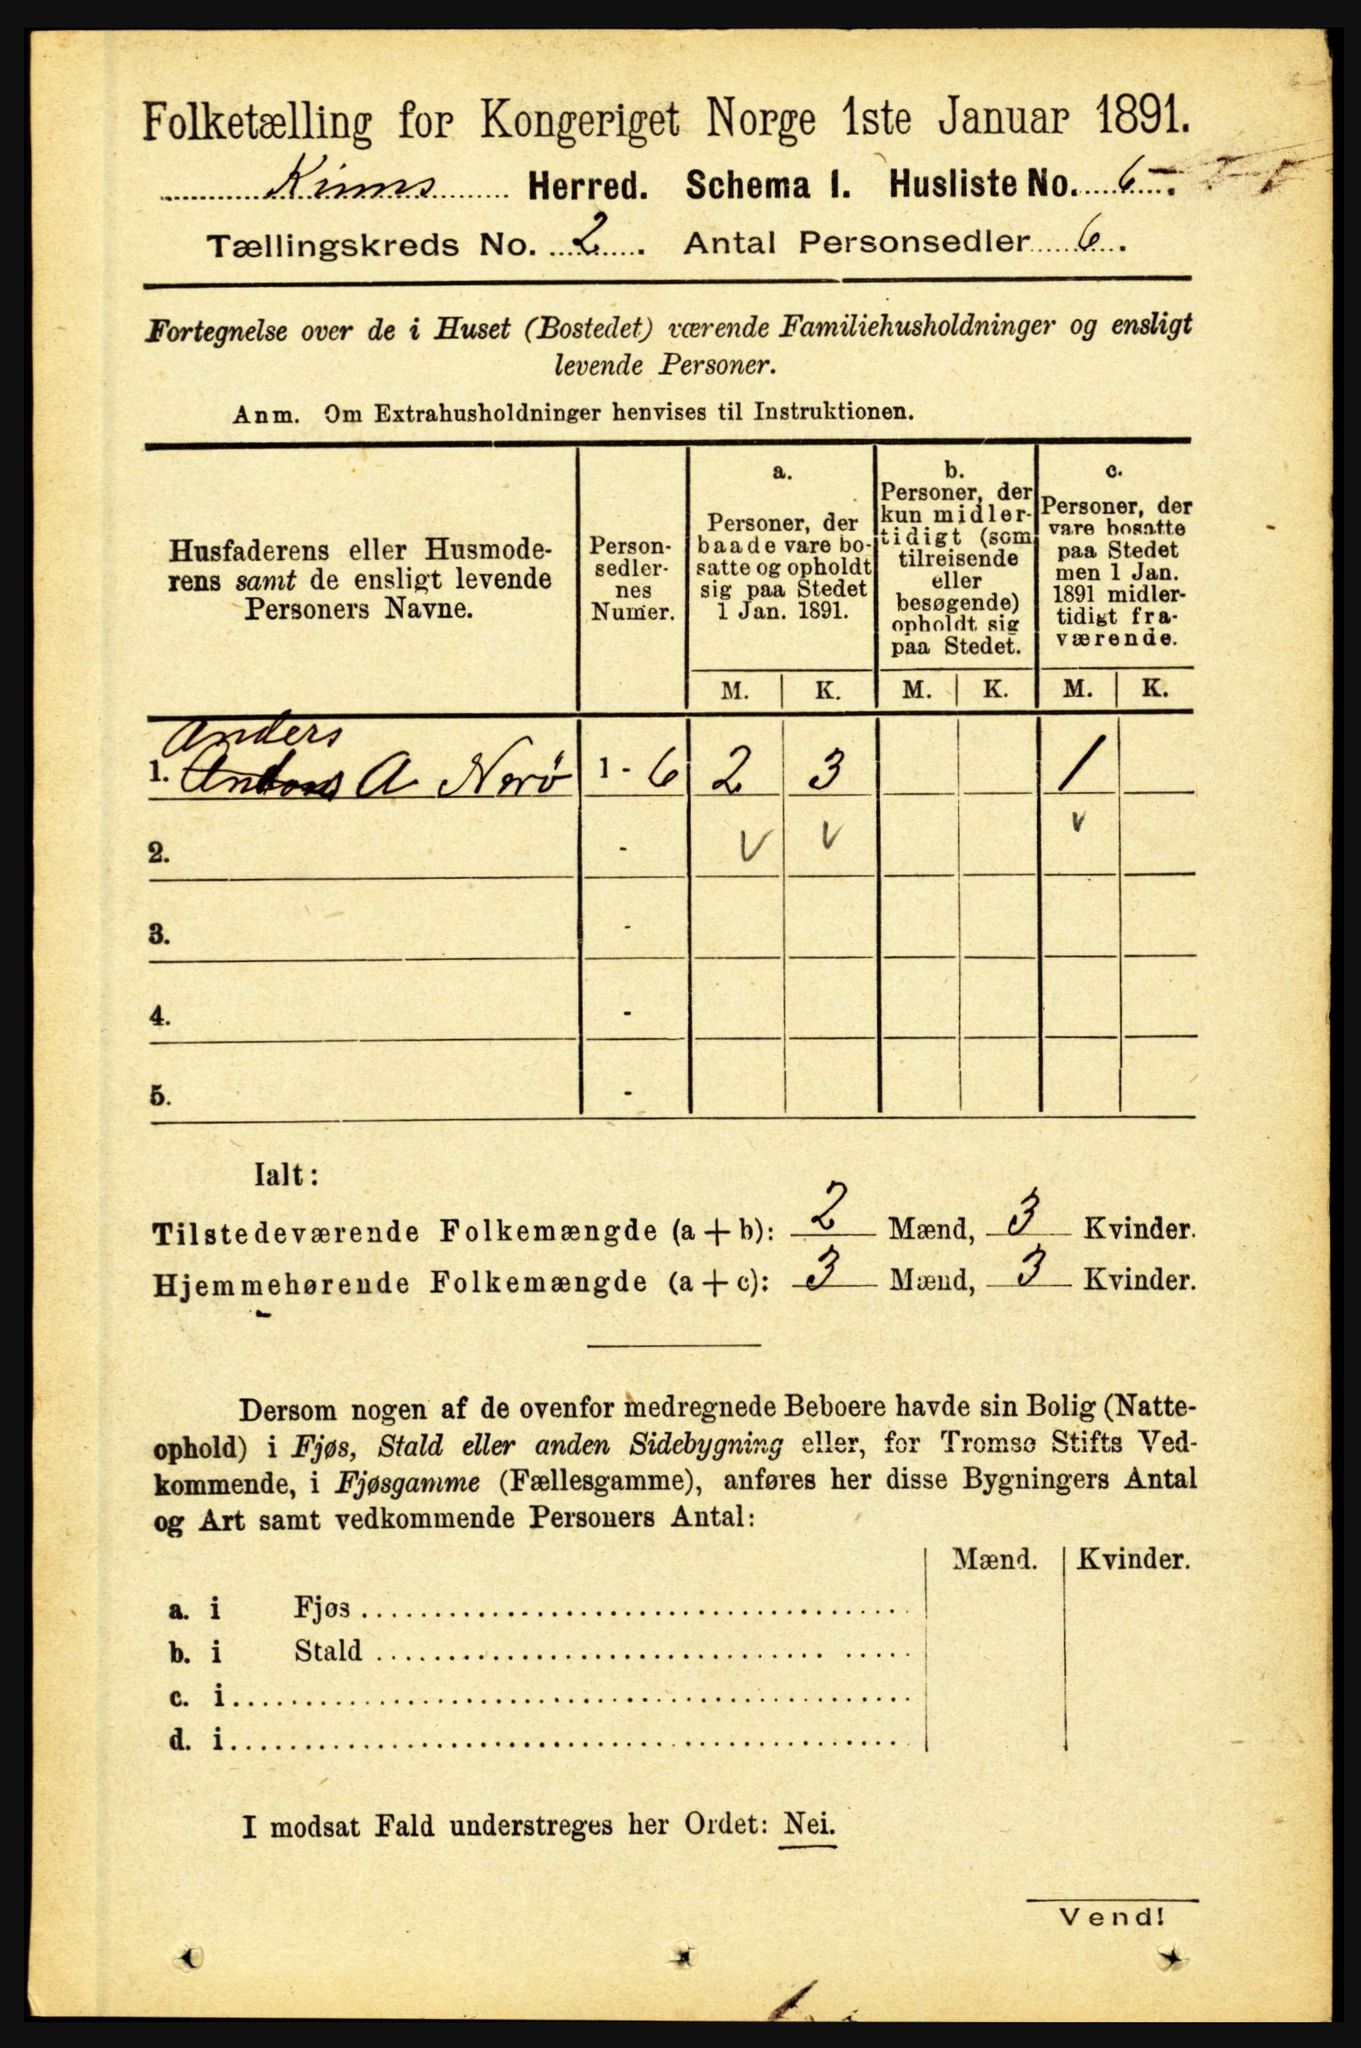 Folketælling for Kongeriget Norge 1ste Januar 1891.
Kinns Herred. Schema I. Husliste No. 6.
Tællingskreds No. 2. Antal Personsedler 6.
Fortegnelse over de i Huset (Bostedet) værende Familiehusholdninger og ensligt
levende Personer.
Anm. Om Extrahusholdninger henvises til Instruktionen.
Husfaderens eller Husmode-
rens samt de ensligt levende
Personers Navne.
Person-
sedler-
nes
Numer.
a.
Personer, der
baade vare bo-
satte og opholdt
sig paa Stedet
1 Jan. 1891.
b.
Personer, der
kun midler-
tidigt (som
tilreisende
eller
besøgende)
opholdt sig
paa Stedet.
c.
Personer, der
vare bosatte
paa Stedet
men 1 Jan.
1891 midler-
tidigt fra-
værende.
M. K. M. K. M. K.
Anders
1. A Nerø 1 - 6 2 3 1
2. - v v v
3. -
4. -
5. -
Ialt:
Tilstedeværende Folkemængde (a + b): 2 Mænd, 3 Kvinder.
Hjemmehørende Folkemængde (a + c): 3 Mænd, 3 Kvinder.
Dersom nogen af de ovenfor medregnede Beboere havde sin Bolig (Natte-
ophold) i Fjøs, Stald eller anden Sidebygning eller, for Tromsø Stifts Ved-
kommende, i Fjøsgamme (Fællesgamme), anføres her disse Bygningers Antal
og Art samt vedkommende Personers Antal:
Mænd. Kvinder.
a. i Fjøs
b. i Stald
c. i
d. i
I modsat Fald understreges her Ordet: Nei.
Vend!